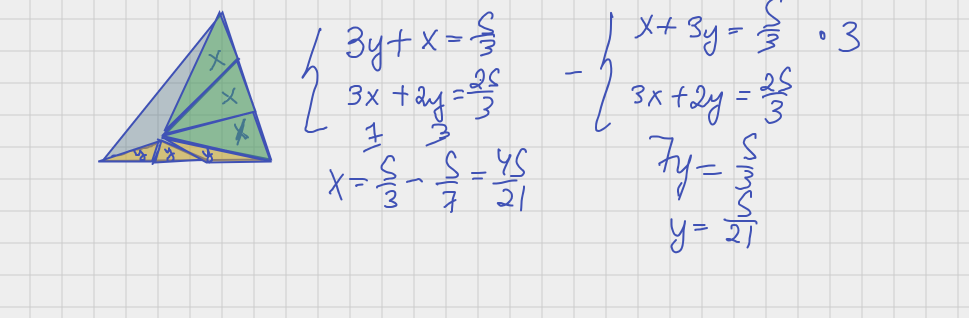 x
x
x
y y y
3y + x = S/3
3x + 2y = 2S/3
7 3
x = S/3 - S/7 = 4S/21
- x + 3y = S/3 · 3
3x + 2y = 2S/3
7y = S/3
y = S/21